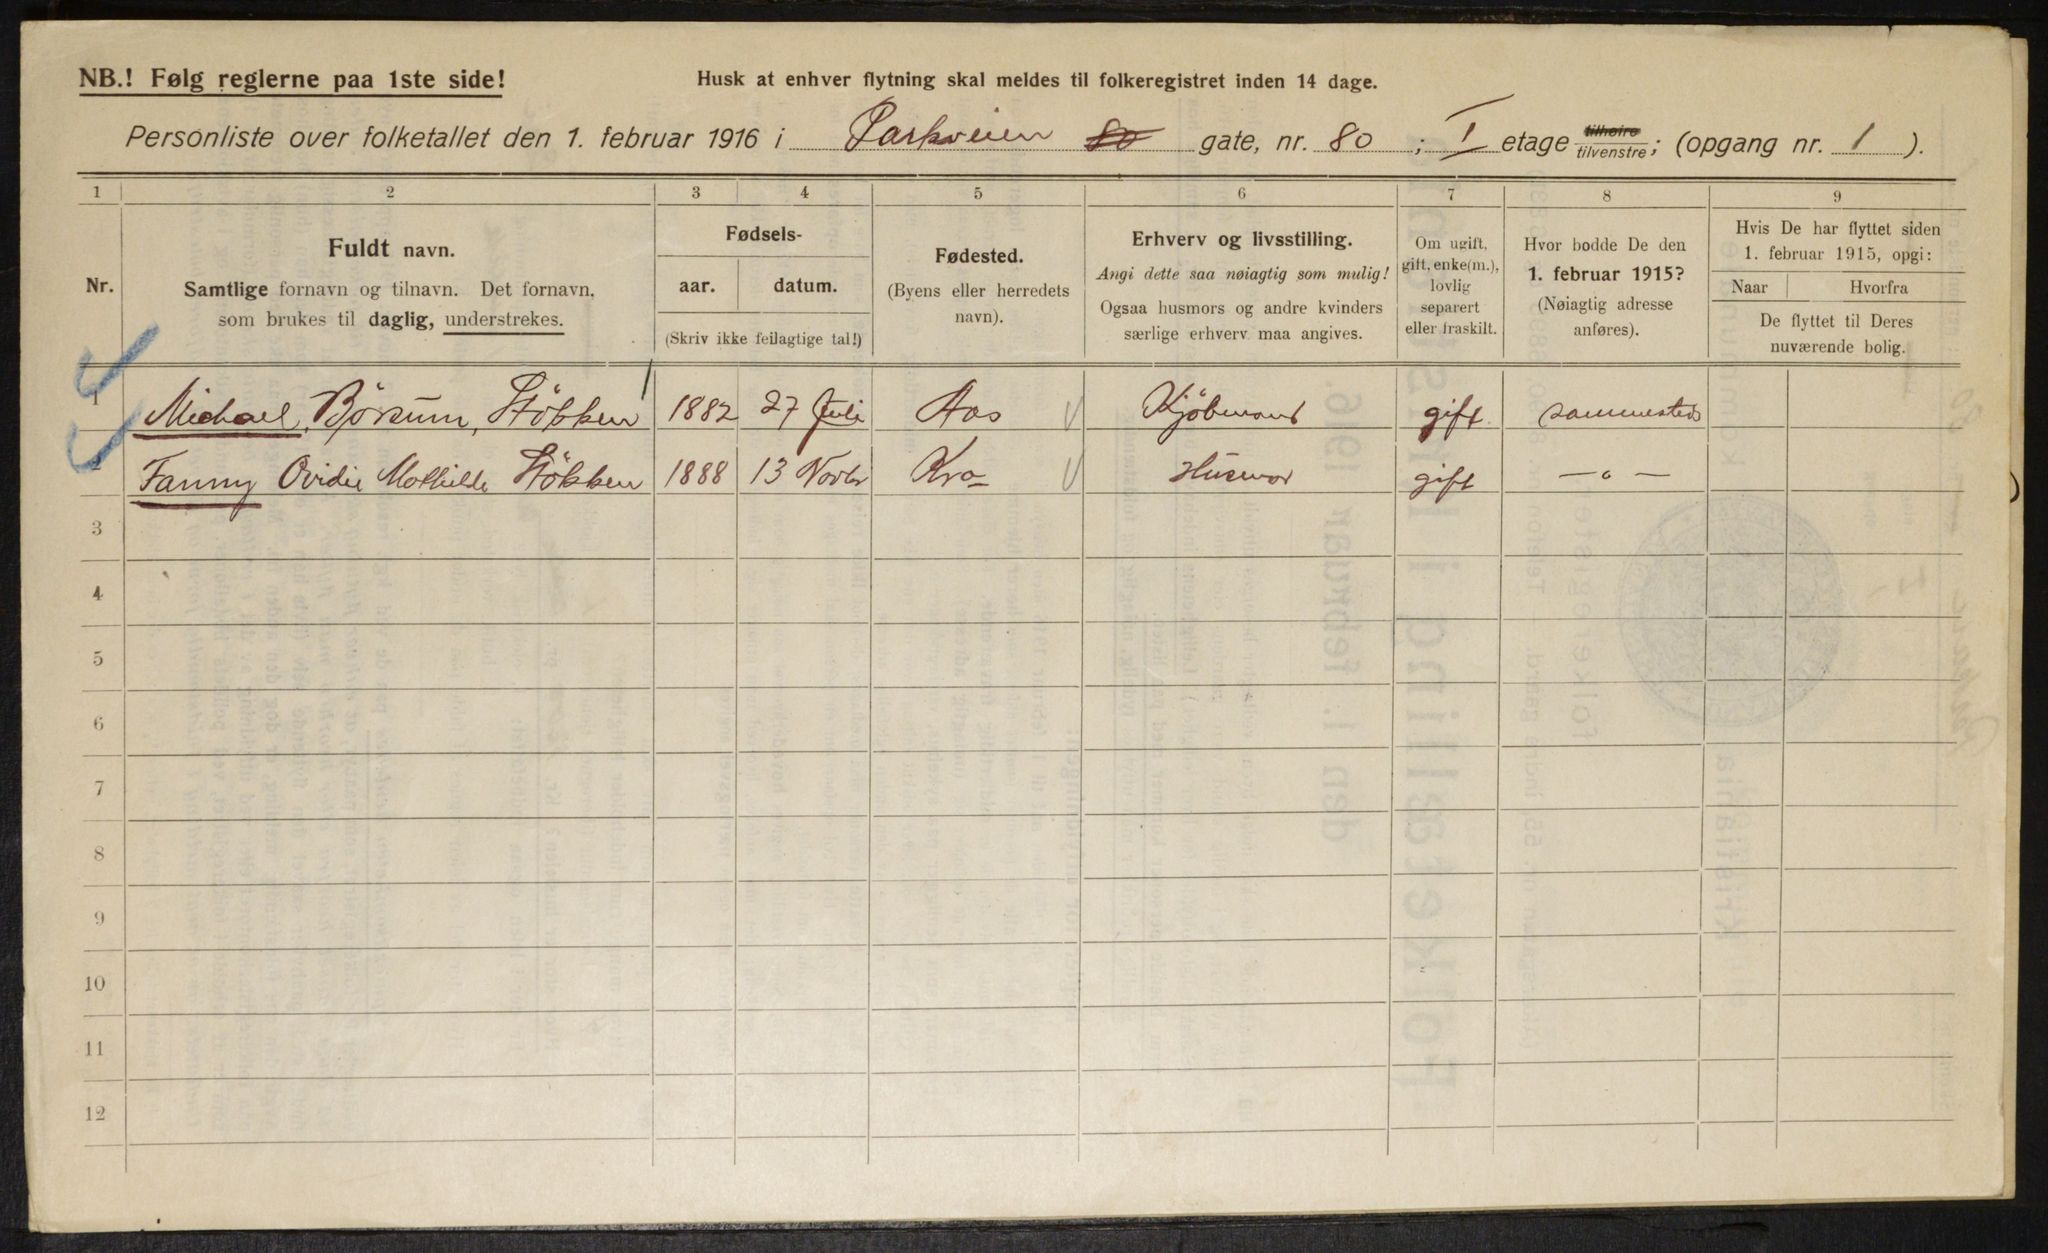 NB.! Følg reglerne paa 1ste side!
Husk at enhver flytning skal meldes til folkeregistret inden 14 dage.
Personliste over folketallet den 1. februar 1916 i Parkveien 80 gate, nr. 80; I etage tilhøire tilvenstre; (opgang nr. 1).
1 2 3 4 5 6 7 8 9
Nr.
Fuldt navn.
Samtlige fornavn og tilnavn. Det fornavn,
som brukes til daglig, understrekes.
Fødsels-
aar. datum.
(Skriv ikke feilagtige tal!)
Fødested.
(Byens eller herredets
navn).
Erhverv og livsstilling.
Angi dette saa nøiagtig som mulig!
Ogsaa husmors og andre kvinders
særlige erhverv maa angives.
Om ugift,
gift, enke(m.),
lovlig
separert
eller fraskilt.
Hvor bodde De den
1. februar 1915?
(Nøiagtig adresse
anføres).
Hvis De har flyttet siden
1. februar 1915, opgi:
Naar Hvorfra
De flyttet til Deres
nuværende bolig.
1 Michael, Børsum, Støkken 1882 27 Juli Aas Kjøbmand gift sammesteds
2 Fanny Ovidie Mathilde Støkken 1888 13 Novbr Kra Husmor gift — „ —
3
4
5
6
7
8
9
10
11
12